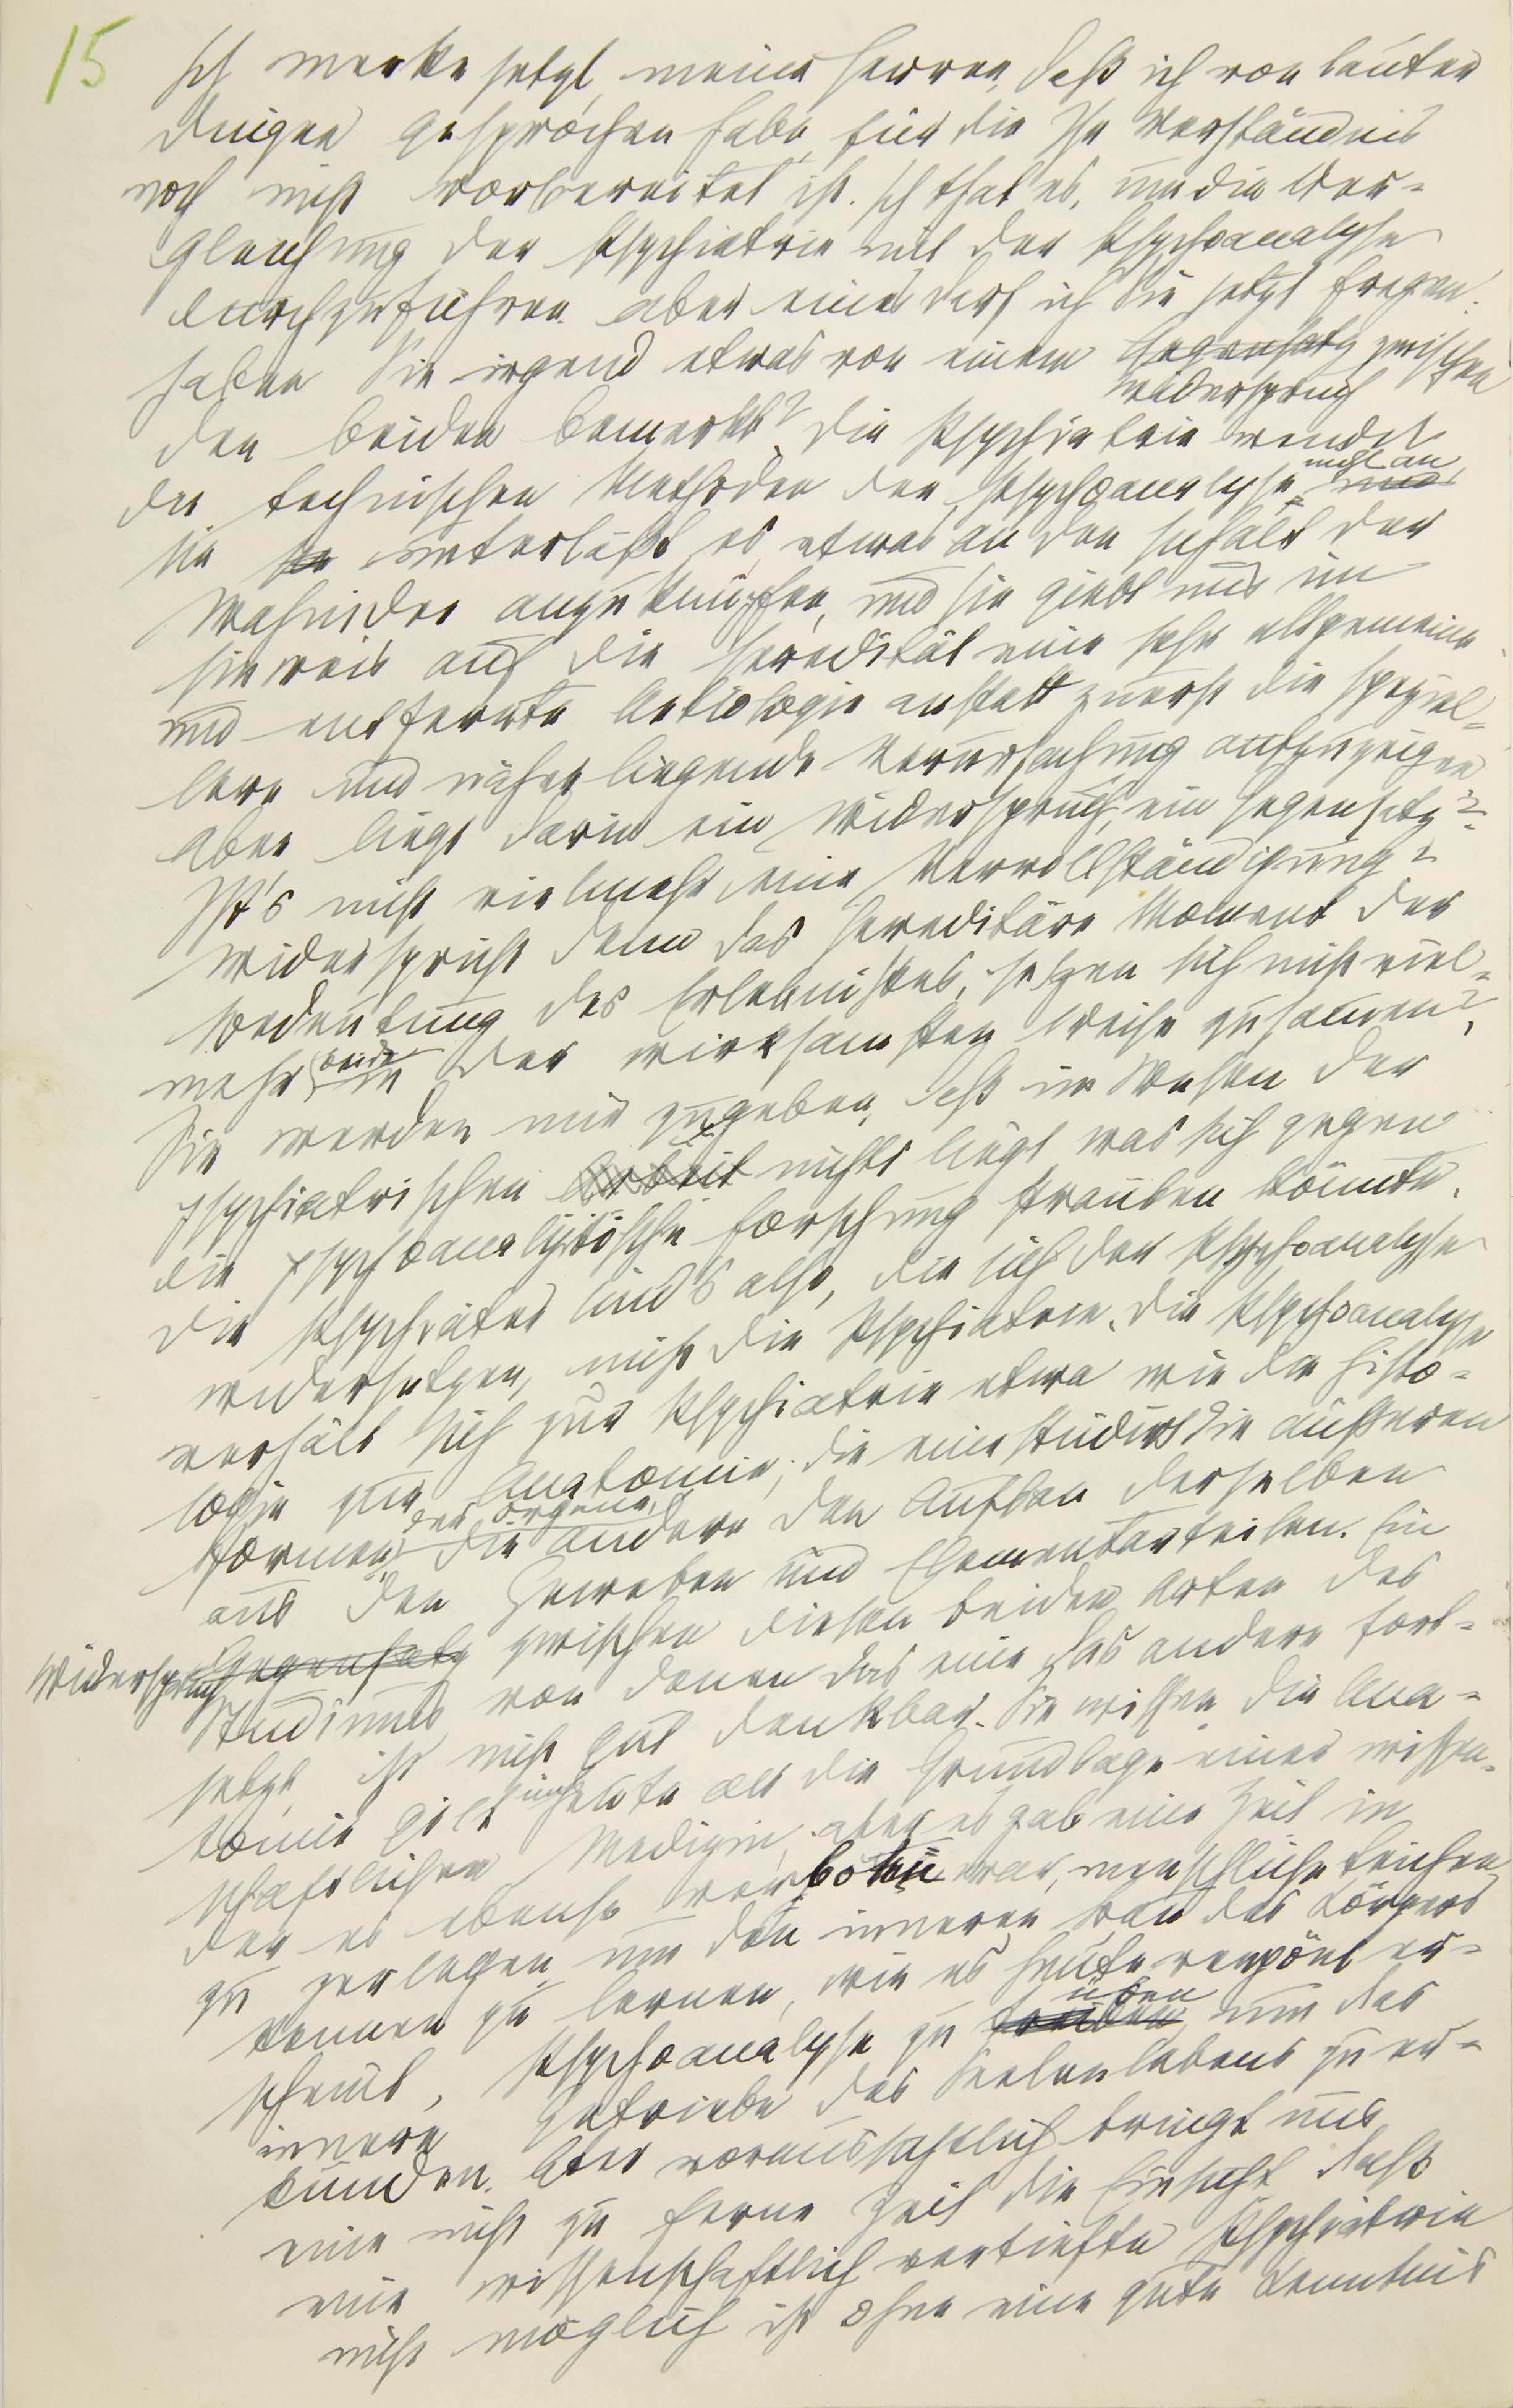 15
Ich merke jetzt, meine Herren, daß ich von lauter
Dingen gesprochen habe, für die Ihr Verständnis
noch nicht vorbereitet ist. Ich that es, um die Ver-
gleichung der Psychiatrie mit der Psychoanalyse
durchzuführen. Aber eines darf ich Sie jetzt fragen:
Haben Sie irgend etwas von einem Gegensatz zwischen
Widerspruch
den beiden bemerkt? Die Psychiatrie wendet
die technischen Methoden der Psychoanalyse nicht an
sie unterläßt es, etwas an den Inhalt der
Wahnidee anzuknüpfen, und sie giebt uns im
Hinweis auf die Heredität eine sehr allgemeine
und entfernte Aetiologie anstatt zuerst die speziel-
lere und näher liegende Verursachung aufzuzeigen
Aber liegt darin ein Widerspruch, ein Gegensatz?
Ist's nicht vielmehr eine Vervollständigung?
Widerspricht denn das hereditäre Moment der
Bedeutung des Erlebnisses, setzen sich nicht viel-
mehr beide in der wirksamsten Weise zusammen?
Sie werden mir zugeben, daß im Wesen der
psychiatrischen Arbeit nichts liegt was sich gegen
die psychoanalytische Forschung sträuben könnte.
Die Psychiater sind's also, die sich der Psychoanalyse
widersetzen, nicht die Psychiatrie. Die Psychoanalyse
verhält sich zur Psychiatrie etwa wie die Histo-
logie zur Anatomie; die eine studirt die äußeren
Formen der Organe, die andere den Aufbau derselben
aus den Geweben und Elementarteilen. Ein
Widerspruch Gegensatz zwischen diesen beiden Arten des
Studiums, von denen das eine das andere fort-
setzt, ist nicht gut denkbar. Sie wissen, die Ana-
tomie gilt uns heute als die Grundlage einer wissen-
schaftlichen Medizin, aber es gab eine Zeit in
der es ebenso verboten war, menschliche Leichen
zu zerlegen, um den inneren Bau des Körpers
kennen zu lernen, wie es heute verpönt er-
scheint, Psychoanalyse zu treiben üben, um das
innere Getriebe des Seelenlebens zu er-
kunden. Aber voraussichtlich bringt uns
eine nicht zu ferne Zeit die Einsicht daß
eine wissenschaftlich vertiefte Psychiatrie
nicht möglich ist ohne eine gute Kenntnis